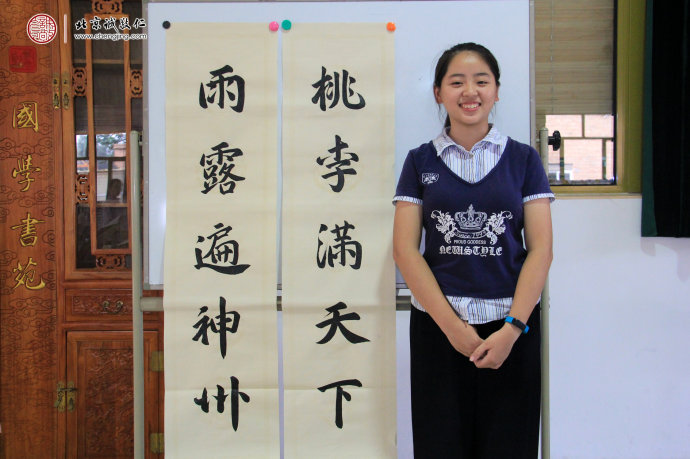 北京诚敬仁
www.chengjing.com
國學書苑
桃李滿天下
雨露遍神州
Since 1972
PROUD GODDESS
NEWSTYLE